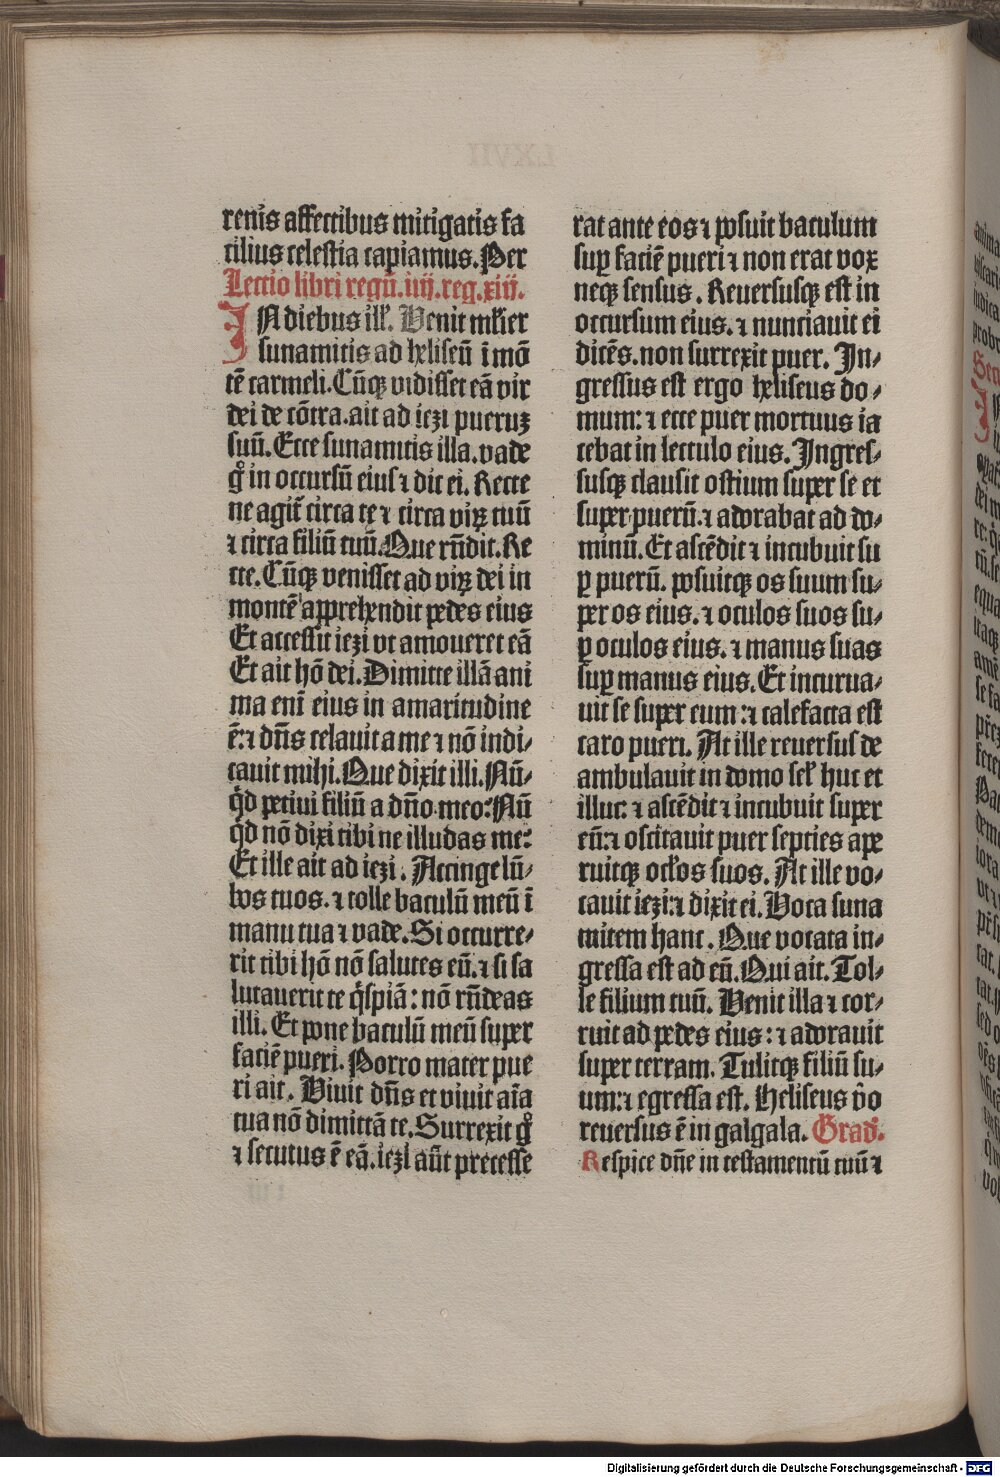 renis affectibus mitigatis fa
cilius celestia capiamus. Per
Lectio libri regū. iiij. reg. xiij.
IN diebus ill̕. Venit ml̕ier
sunamitis ad heliseū ī mō
tē carmeli. Cūqꝫ vidisset eā vir
dei de cōtra. ait ad iezi pueruꝫ
suū. Ecce sunamitis illa. vade
gͦ in occursū eius ⁊ dic ei. Recte
ne agit̄ circa te ⁊ circa virꝫ tuū
⁊ circa filiū tuū. Que rn̄dit. Re
cte. Cūqꝫ venisset ad virꝫ dei in
montē apprehendit pedes eius
Et accessit iezi vt amoueret eā
Et ait hō dei. Dimitte illā ani
ma enī eius in amaritudine
ē: ⁊ dn̄s celauit a me ⁊ nō indi⸗
cauit mihi. Que dixit illi. Nū⸗
qͥd petiui filiū a dn̄o meo: Nū
qͥd nō dixi tibi ne illudas me:
Et ille ait ad iezi. Accinge lū⸗
bos tuos. ⁊ tolle baculū meū ī
manu tua ⁊ vade. Si occurre⸗
rit tibi hō nō salutes eū. ⁊ si sa
lutauerit te qͥspiā: nō rn̄deas
illi. Et pone baculū meū super
faciē pueri. Porro mater pue
ri ait. Viuit dn̄s et viuit aīa
tua nō dimittā te. Surrexit gͦ
⁊ secutus ē eā. iezi aūt precesse
rat ante eos ⁊ posuit baculum
suꝑ faciē pueri ⁊ non erat vox
neqꝫ sensus. Reuersusqꝫ est in
occursum eius. ⁊ nunciauit ei
dicēs. non surrexit puer. In⸗
gressus est ergo heliseus do⸗
mum: ⁊ ecce puer mortuus ia
cebat in lectulo eius. Ingres⸗
susqꝫ clausit ostium super se et
super puerū. ⁊ adorabat ad do⸗
minū. Et ascēdit ⁊ incubuit su
ꝑ puerū. posuitqꝫ os suum su⸗
per os eius. ⁊ oculos suos su⸗
ꝑ oculos eius. ⁊ manus suas
suꝑ manus eius. Et incurua⸗
uit se super eum: ⁊ calefacta est
caro pueri. At ille reuersus de
ambulauit in domo sel̕ huc et
illuc: ⁊ ascēdit ⁊ incubuit super
eū: ⁊ oscitauit puer septies ape
ruitqꝫ ocl̕os suos. At ille vo⸗
cauit iezi: ⁊ dixit ei. Voca suna
mitem hanc. Que vocata in⸗
gressa est ad eū. Qui ait. Tol⸗
le filium tuū. Venit illa ⁊ cor⸗
ruit ad pedes eius: ⁊ adorauit
super terram. Tulitqꝫ filiū su⸗
um: ⁊ egressa est. Heliseus v̄o
reuersus ē in galgala. Grad̕.
Respice dn̄e in testamentū tuū ⁊
Digitalisierung gefördert durch die Deutsche Forschungsgemeinschaft - DFG